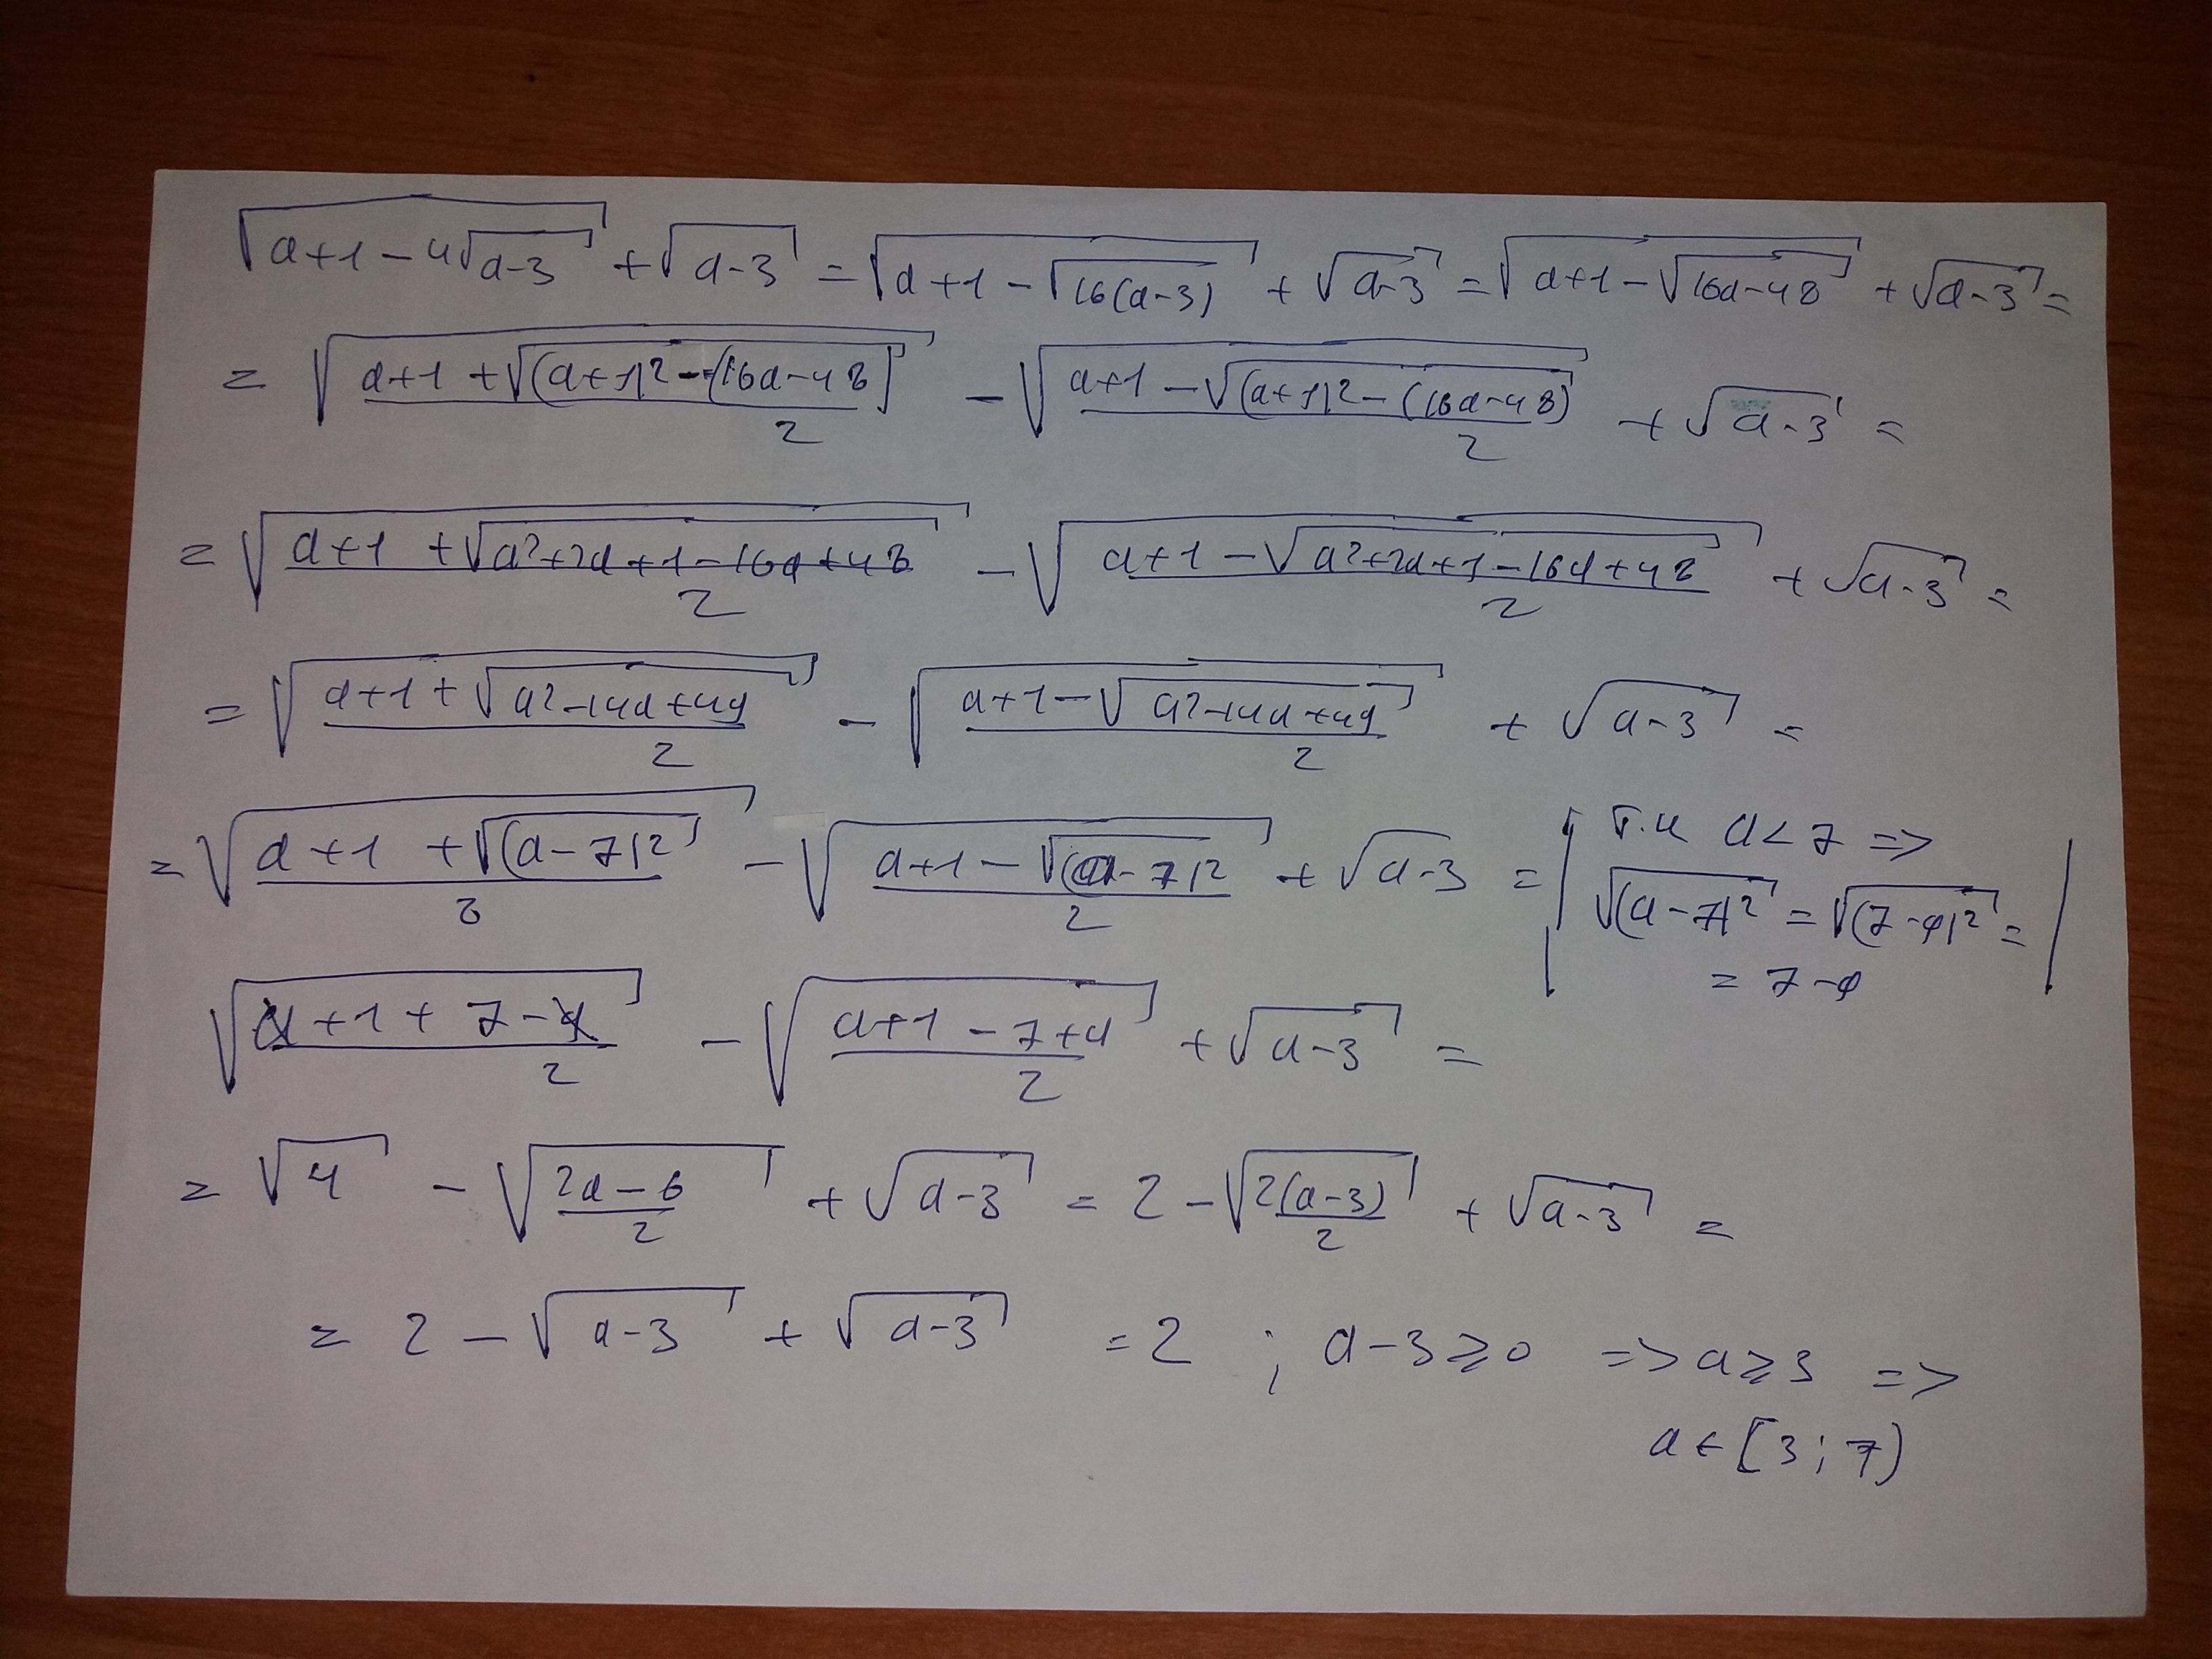 √(a+1-4√(a-3)) + √(a-3) = √(a+1-√(16(a-3))) + √(a-3) = √(a+1-√(16a-48)) + √(a-3) =
= √((a+1+√((a+1)²-(16a-48)))/2) - √((a+1-√((a+1)²-(16a-48)))/2) + √(a-3) =
= √((a+1+√(a²+2a+1-16a+48))/2) - √((a+1-√(a²+2a+1-16a+48))/2) + √(a-3) =
= √((a+1+√(a²-14a+49))/2) - √((a+1-√(a²-14a+49))/2) + √(a-3) =
= √((a+1+√((a-7)²))/2) - √((a+1-√((a-7)²))/2) + √(a-3) = | т.к a<7 =>
√((a-7)²) = √((7-a)²) =
= 7-a |
√((a+1+7-a)/2) - √((a+1-7+a)/2) + √(a-3) =
= √4 - √((2a-6)/2) + √(a-3) = 2 - √(2(a-3)/2) + √(a-3) =
= 2 - √(a-3) + √(a-3) = 2 ; a-3⩾0 => a⩾3 =>
a ∈ [3;7)